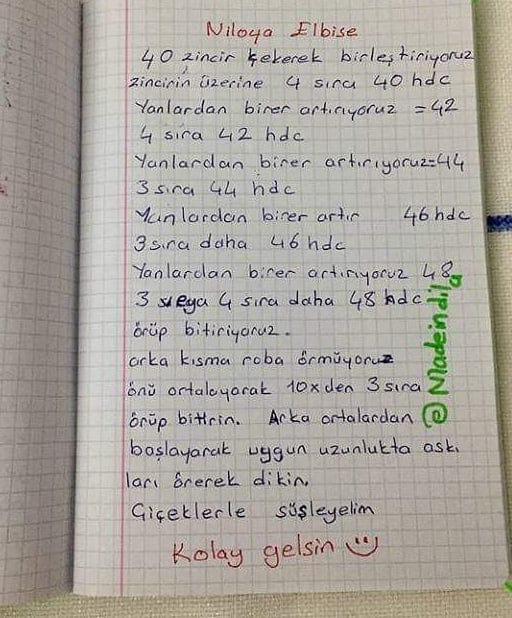 Niloya Elbise
40 zincir çekerek birleştiriyoruz
zincirin üzerine 4 sıra 40 hdc
Yanlardan birer artırıyoruz =42
4 sıra 42 hdc
Yanlardan birer artırıyoruz=44
3 sıra 44 hdc
Yanlardan birer artır 46 hdc
3 sıra daha 46 hdc
Yanlardan birer artırıyoruz 48
3 veya 4 sıra daha 48 hdc
örüp bitiriyoruz.
arka kısma roba örmüyoruz
önü ortalayarak 10x den 3 sıra
örüp bitirin. Arka ortalardan
başlayarak uygun uzunlukta askı
ları örerek dikin.
Çiçeklerle süsleyelim
Kolay gelsin
@Madeindila